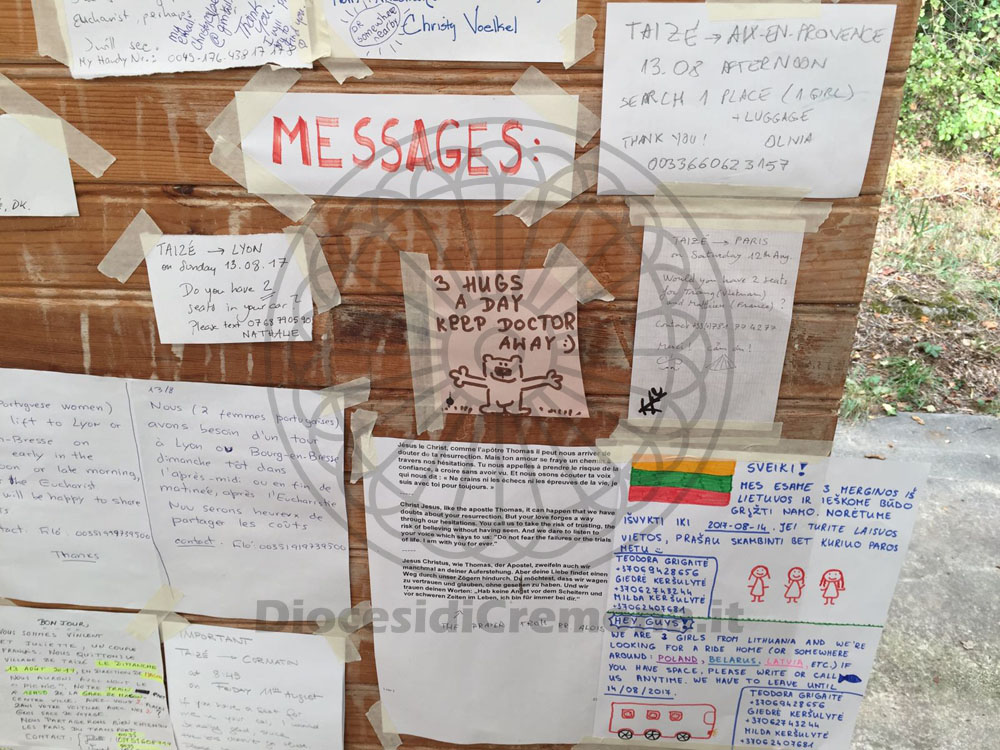 Eucharist, perhaps
I will see.
My Handy Nr.: 0049-176-438 17
Thank you
or somewhere nearby
Christy Voelkel
TAIZÉ → AIX-EN-PROVENCE
13.08 AFTERNOON
SEARCH 1 PLACE (1 GIRL)
+ LUGGAGE
THANK YOU!
0033660623157
MESSAGES:
DK.
TAIZÉ → LYON
on Sunday 13.08.17
Do you have 2
seats in your car?
Please text 0768790590
NATHALIE
3 HUGS
A DAY
KEEP DOCTOR
AWAY :)
TAIZÉ → PARIS
on Saturday 12th Aug.
Would you have 2 seats
for Trang (Vietnam)
and (France) ?
Portuguese women)
lift to Lyon or
en-Bresse on
early in the
or late morning,
the Eucharist
will be happy to share
Thanks
13/8
Nous (2 femmes portugaises)
avons besoin d'un tour
à Lyon ou Bourg-en-Bresse
dimanche tôt dans
l'après-midi ou en fin de
matinée, après l'Eucharistie
Nous serons heureux de
partager les coûts
contact: 00351919739500
Jésus le Christ, comme l'apôtre Thomas il peut nous arriver de
douter de ta résurrection. Mais ton amour se fraye un chemin à
travers nos hésitations. Tu nous appelles à prendre le risque de la
confiance, à croire sans avoir vu. Et nous osons écouter ta voix
qui nous dit : « Ne crains ni les échecs ni les épreuves de la vie, je
suis avec toi pour toujours. »
Christ Jesus, like the apostle Thomas, it can happen that we have
doubts about your resurrection. But your love forges a way
through our hesitations. You call us to take the risk of trusting, the
risk of believing without having seen. And we dare to listen to
your voice which says to us: "Do not fear the failures or the trials
of life. I am with you for ever."
......
Jesus Christus, wie Thomas, der Apostel, zweifeln auch wir
manchmal an deiner Auferstehung. Aber deine Liebe findet einen
Weg durch unser Zögern hindurch. Du möchtest, dass wir wagen
zu vertrauen und glauben, ohne gesehen zu haben. Und wir
trauen deinen Worten: „Hab keine Angst vor dem Scheitern und
vor schweren Zeiten im Leben, ich bin für immer bei dir."
THE PRAYER FROM BR ALOIS
SVEIKI!
MES ESAME 3 MERGINOS IŠ
LIETUVOS IR IEŠKOME BŪDO
GRĮŽTI NAMO. NORĖTUME
IŠVYKTI IKI 2017-08-14. JEI TURITE LAISVOS
VIETOS, PRAŠAU SKAMBINTI BET KURIUO PAROS
METU
TEODORA GRIGAITĖ
+37069428656
GIEDRĖ KERŠULYTĖ
+37062743244
MILDA KERŠULYTĖ
+37062407681
HEY, GUYS!
WE ARE 3 GIRLS FROM LITHUANIA AND WE'RE
LOOKING FOR A RIDE HOME (OR SOMEWHERE
AROUND: POLAND, BELARUS, LATVIA ETC.) IF
YOU HAVE SPACE, PLEASE WRITE OR CALL
US ANYTIME. WE HAVE TO LEAVE UNTIL
14/08/2017.
TEODORA GRIGAITĖ
+37069428656
GIEDRĖ KERŠULYTĖ
+37062743244
MILDA KERŠULYTĖ
+37062407681
BONJOUR,
NOUS SOMMES VINCENT
ET JULIETTE, UN COUPLE
FRANÇAIS. NOUS QUITTONS LE
VILLAGE DE TAIZÉ LE DIMANCHE
13 AOÛT 2017,
CONTACT:
IMPORTANT
TAIZÉ → CORMATIN
at 8:45
on FRIDAY 11th August
if you have a seat for
DiocesidiCremona.it